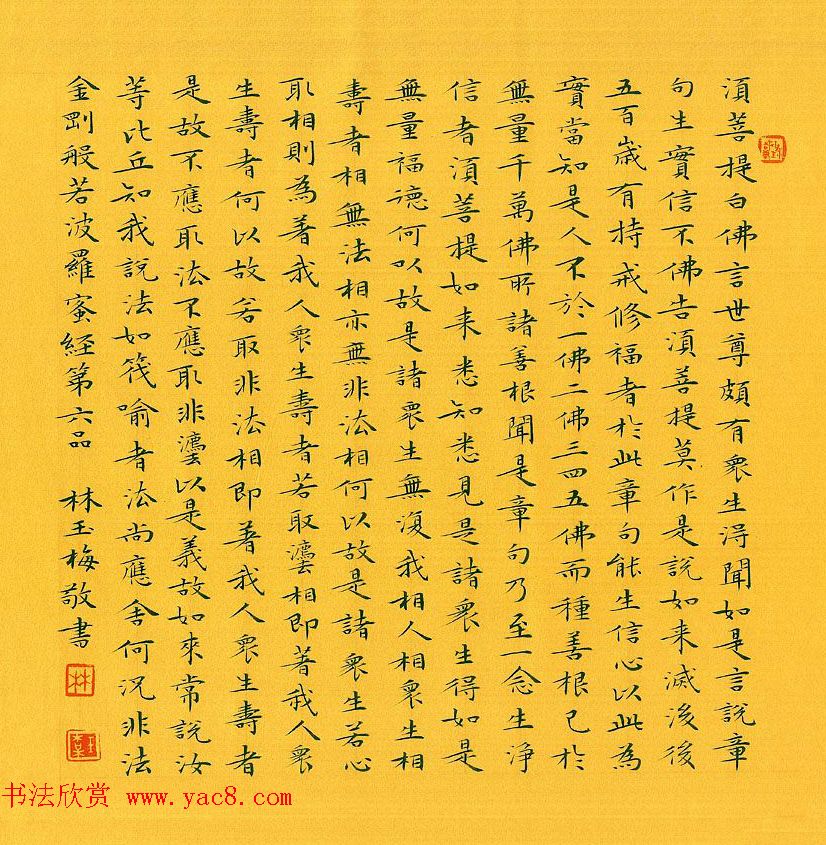 須菩提白佛言世尊頗有衆生得聞如是言說章
句生實信不佛告須菩提莫作是說如来滅後後
五百歲有持戒修福者於此章句能生信心以此為
實當知是人不於一佛二佛三四五佛而種善根已於
無量千萬佛所諸善根聞是章句乃至一念生淨
信者須菩提如来悉知悉見是諸衆生得如是
無量福德何以故是諸衆生無復我相人相衆生相
壽者相無法相亦無非法相何以故是諸衆生若心
取相則為著我人衆生壽者若取灋相即著我人衆
生壽者何以故若取非法相即著我人衆生壽者
是故不應取法不應取非灋以是義故如來常說汝
等比丘知我說法如筏喻者法尚應舍何况非法
金剛般若波羅蜜經第六品 林玉梅敬書
林
书法欣赏 www.yac8.com